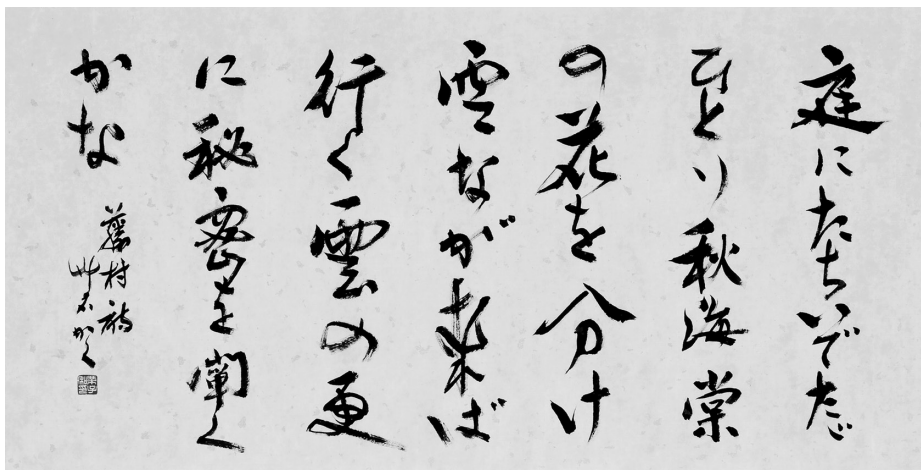 庭にたちいでたゞ
ひとり秋海棠
の花を分け
空ながむれば
行く雲の更
に秘密を闡く
かな
藤村詩
かく